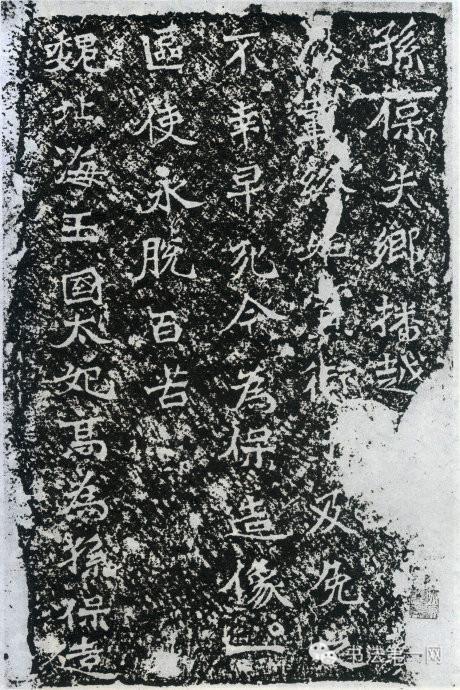 孫保失鄉播越
終 及免
不幸早死今為保造像一
區使永脫百苦
魏北海王國太妃高為孫保造
书法第一网